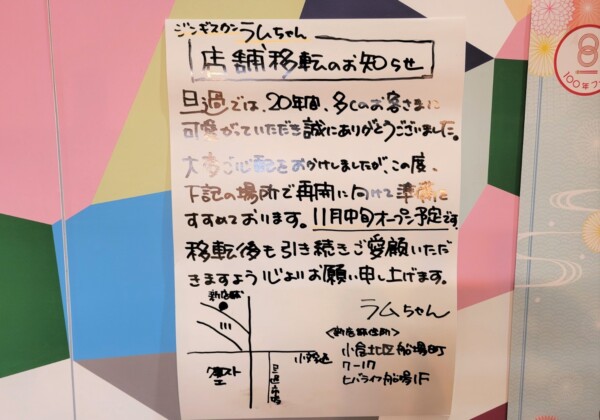 ジンギスカンラムちゃん
店舗移転のお知らせ
旦過では、20年間、多くのお客さまに
可愛がっていただき誠にありがとうございました。
大変ご心配をおかけしましたが、この度、
下記の場所で再開に向けて準備を
すすめております。11月中旬オープン予定です
移転後も引き続きご愛顧いただ
きますよう心よりお願い申し上げます。
ラムちゃん
<新店舗住所>
小倉北区船場町
7-17
ヒバライフ船場1F
新店舗
旦過市場
100年フ